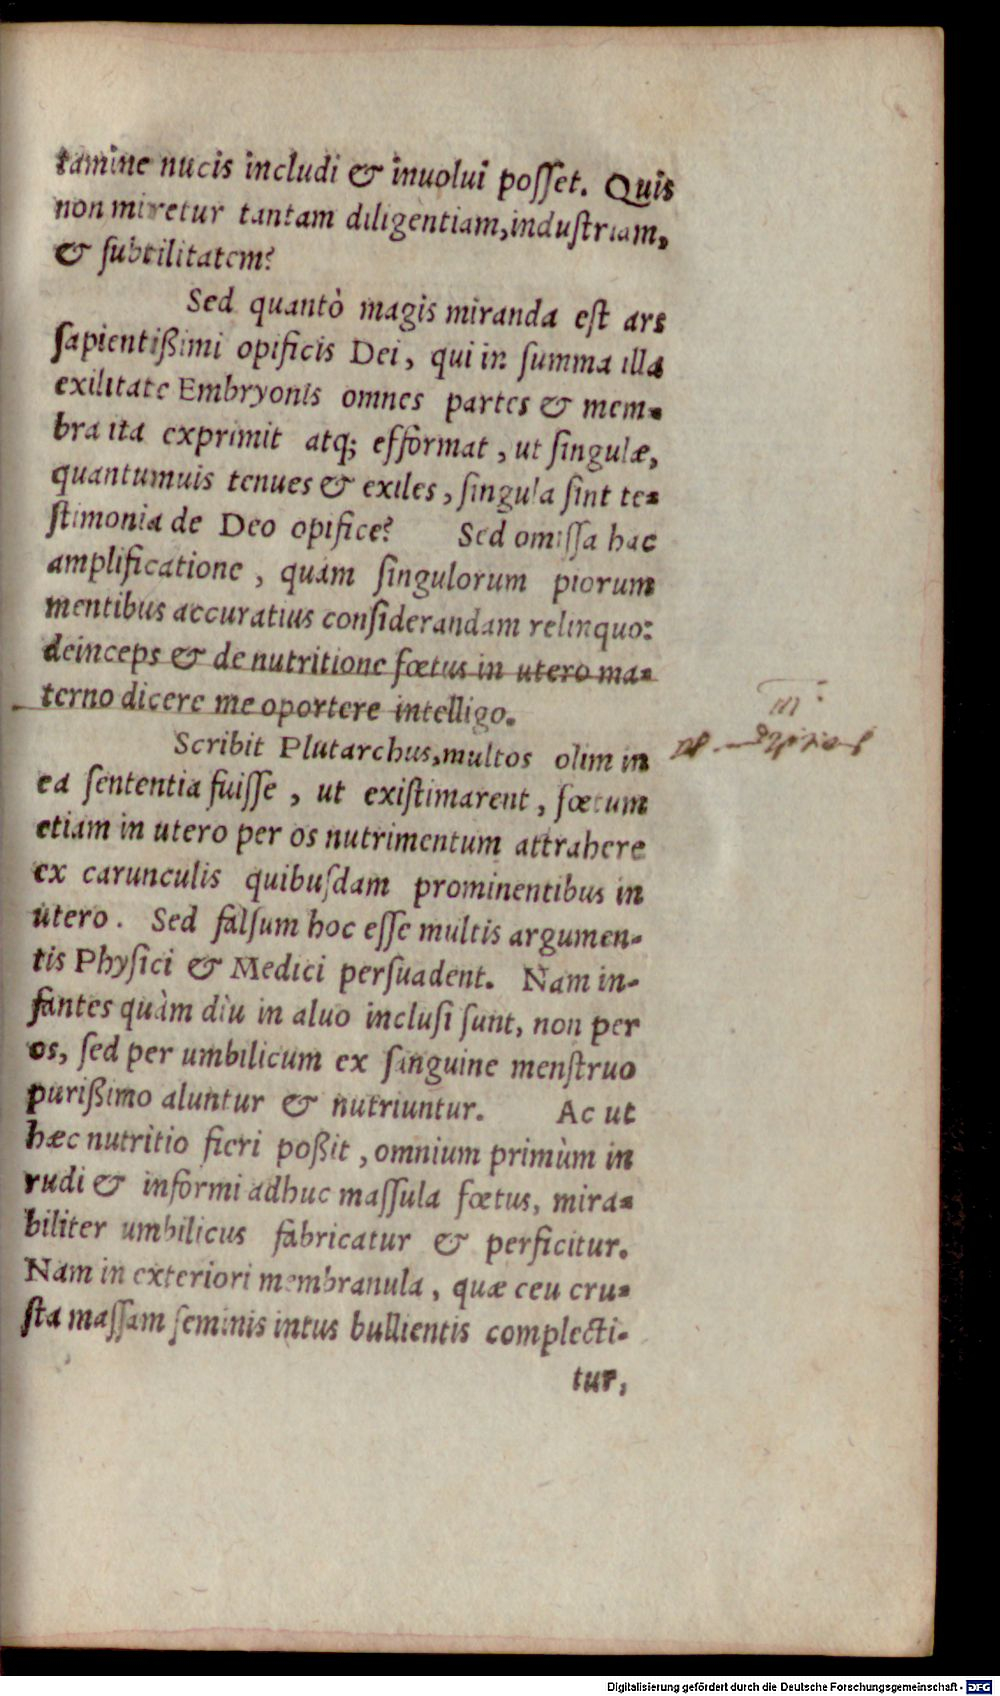 tamine nucis includi & inuolui poſſet. Quis
non miretur tantam diligentiam, induſtriam,
& ſubtilitatem?
Sed quantò magis miranda eſt ars
ſapientißimi opificis Dei, qui in ſumma illa
exilitate Embryonis omnes partes & mem-
bra ita exprimit atq; efformat, ut ſingulæ,
quantumuis tenues & exiles, ſingula ſint te-
ſtimonia de Deo opifice? Sed omiſſa hac
amplificatione, quam ſingulorum piorum
mentibus accuratius conſiderandam relinquo:
deinceps & de nutritione fœtus in utero ma-
terno dicere me oportere intelligo.
Scribit Plutarchus, multos olim in
ea ſententia fuiſſe, ut exiſtimarent, fœtum
etiam in utero per os nutrimentum attrahere
ex carunculis quibuſdam prominentibus in
utero. Sed falſum hoc eſſe multis argumen-
tis Phyſici & Medici perſuadent. Nam in-
fantes quàm diu in aluo incluſi ſunt, non per
os, ſed per umbilicum ex ſanguine menſtruo
purißimo aluntur & nutriuntur. Ac ut
hæc nutritio fieri poßit, omnium primùm in
rudi & informi adhuc maſſula fœtus, mira-
biliter umbilicus fabricatur & perficitur.
Nam in exteriori membranula, quæ ceu cru-
ſta maſſam ſeminis intus bullientis complecti-
tur,
Digitalisierung gefördert durch die Deutsche Forschungsgemeinschaft - DFG